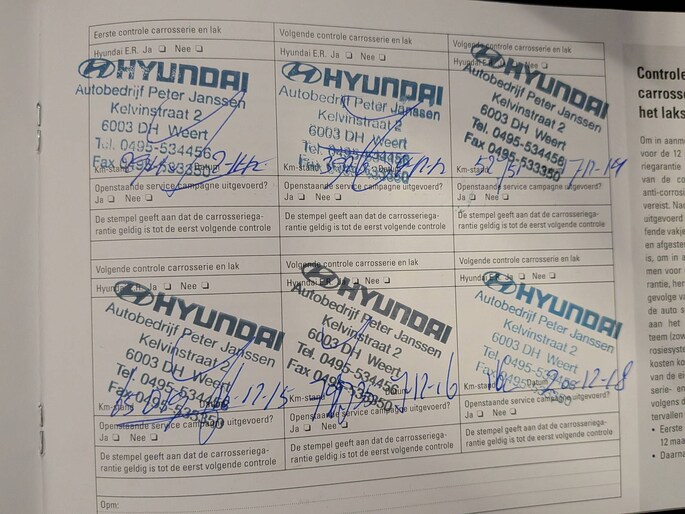 Eerste controle carrosserie en lak
Hyundai E.R. Ja Nee
HYUNDAI
Autobedrijf Peter Janssen
Kelvinstraat 2
6003 DH Weert
Tel. 0495-534456
Fax 0495-533350
Km-stand
Datum
Openstaande service campagne uitgevoerd?
Ja Nee
De stempel geeft aan dat de carrosseriega-
rantie geldig is tot de eerst volgende controle
Volgende controle carrosserie en lak
Hyundai E.R. Ja Nee
HYUNDAI
Autobedrijf Peter Janssen
Kelvinstraat 2
6003 DH Weert
Tel. 0495-534456
Fax 0495-533350
Km-stand
Openstaande service campagne uitgevoerd?
Ja Nee
De stempel geeft aan dat de carrosseriega-
rantie geldig is tot de eerst volgende controle
Volgende controle carrosserie en lak
Hyundai E.R. Ja Nee
HYUNDAI
Autobedrijf Peter Janssen
Kelvinstraat 2
6003 DH Weert
Tel. 0495-534456
Fax 0495-533350
Km-stand
Openstaande service campagne uitgevoerd?
Ja Nee
De stempel geeft aan dat de carrosseriega-
rantie geldig is tot de eerst volgende controle
Volgende controle carrosserie en lak
Hyundai E.R. Ja Nee
HYUNDAI
Autobedrijf Peter Janssen
Kelvinstraat 2
6003 DH Weert
Tel. 0495-534456
Fax 0495-533350
Km-stand
Openstaande service campagne uitgevoerd?
Ja Nee
De stempel geeft aan dat de carrosseriega-
rantie geldig is tot de eerst volgende controle
Volgende controle carrosserie en lak
Hyundai E.R. Ja Nee
HYUNDAI
Autobedrijf Peter Janssen
Kelvinstraat 2
6003 DH Weert
Tel. 0495-534456
Fax 0495-533350
Km-stand
Datum
12-16
Openstaande service campagne uitgevoerd?
Ja Nee
De stempel geeft aan dat de carrosseriega-
rantie geldig is tot de eerst volgende controle
Volgende controle carrosserie en lak
Hyundai E.R. Ja Nee
HYUNDAI
Autobedrijf Peter Janssen
Kelvinstraat 2
6003 DH Weert
Tel. 0495-534456
Fax 0495-533350
Km-stand
Datum
12-18
Openstaande service campagne uitgevoerd?
Ja Nee
De stempel geeft aan dat de carrosseriega-
rantie geldig is tot de eerst volgende controle
Opm:
Controle
carrosse
het laks
Om in aanme
voor de 12
riegarantie
van de co
anti-corrosi
vereist. Nac
uitgevoerd
fende vakje
en afgeste
is, om in a
men voor
rantie, her
gevolge va
de auto s
aan het
teem (zow
rosiesyste
kosten ko
van de ei
serie- en
volgens d
tervallen
• Eerste
12 maa
• Daarna